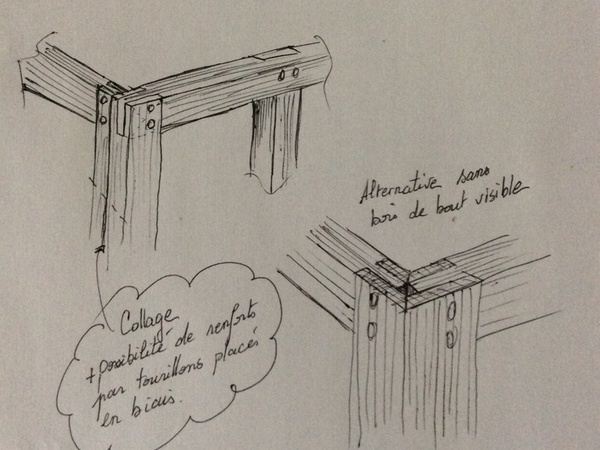 Alternative sans
bois de bout visible
Collage
+ possibilité de renforts
par tourillons placés
en biais.